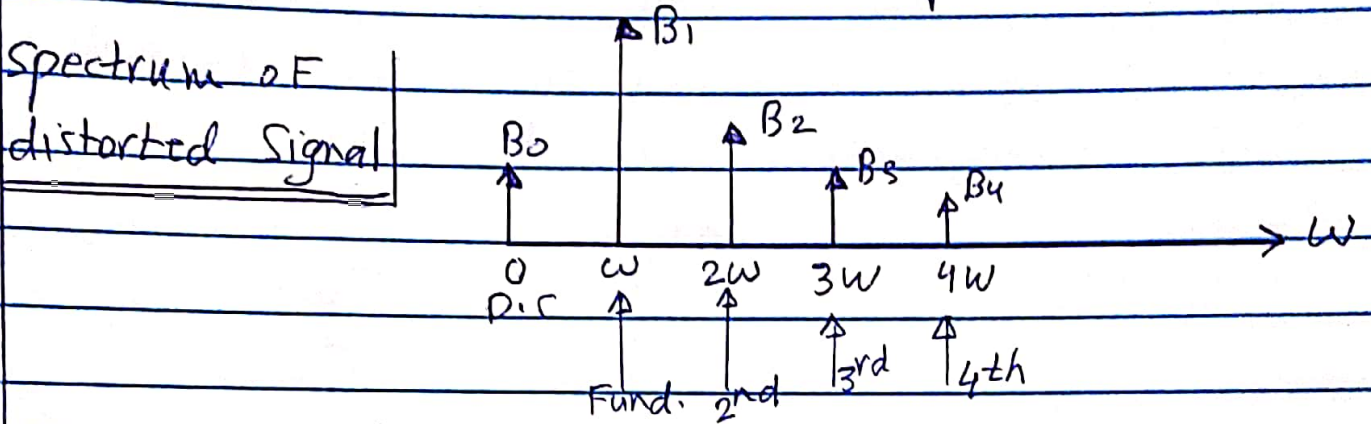 Spectrum of
distorted Signal
B0
B1
B2
B3
B4
W
0 ω 2ω 3ω 4ω
D.C
Fund. 2nd 3rd 4th